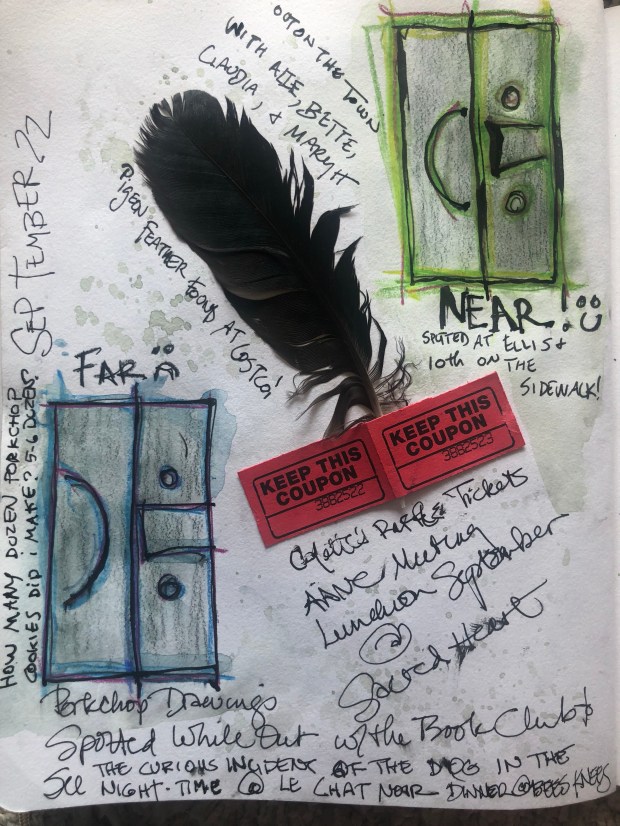 OUT ON THE TOWN
WITH ALIE, BETTE,
CLAUDIA, & MARY H
PIGEN FEATHER FOUND AT COSTCO!
SEPTEMBER 22
NEAR! 
SPOTED AT ELLIS &
10th ON THE
SIDEWALK!
FAR
HOW MANY DOZEN PORKCHOP
COOKIES DID i MAKE? 5.6 DOZEN?
KEEP THIS
COUPON
3882522
KEEP THIS
COUPON
3882523
Raffle Tickets
Meeting
Luncheon September
@
Sacred Heart
Porkchop Drawings
Spotted While Out w/the Book Club to
See THE CURIOUS INCIDENT OF THE DOG IN THE
NIGHT-TIME @ LE CHAT NEAR DINNER @ BEES KNEES